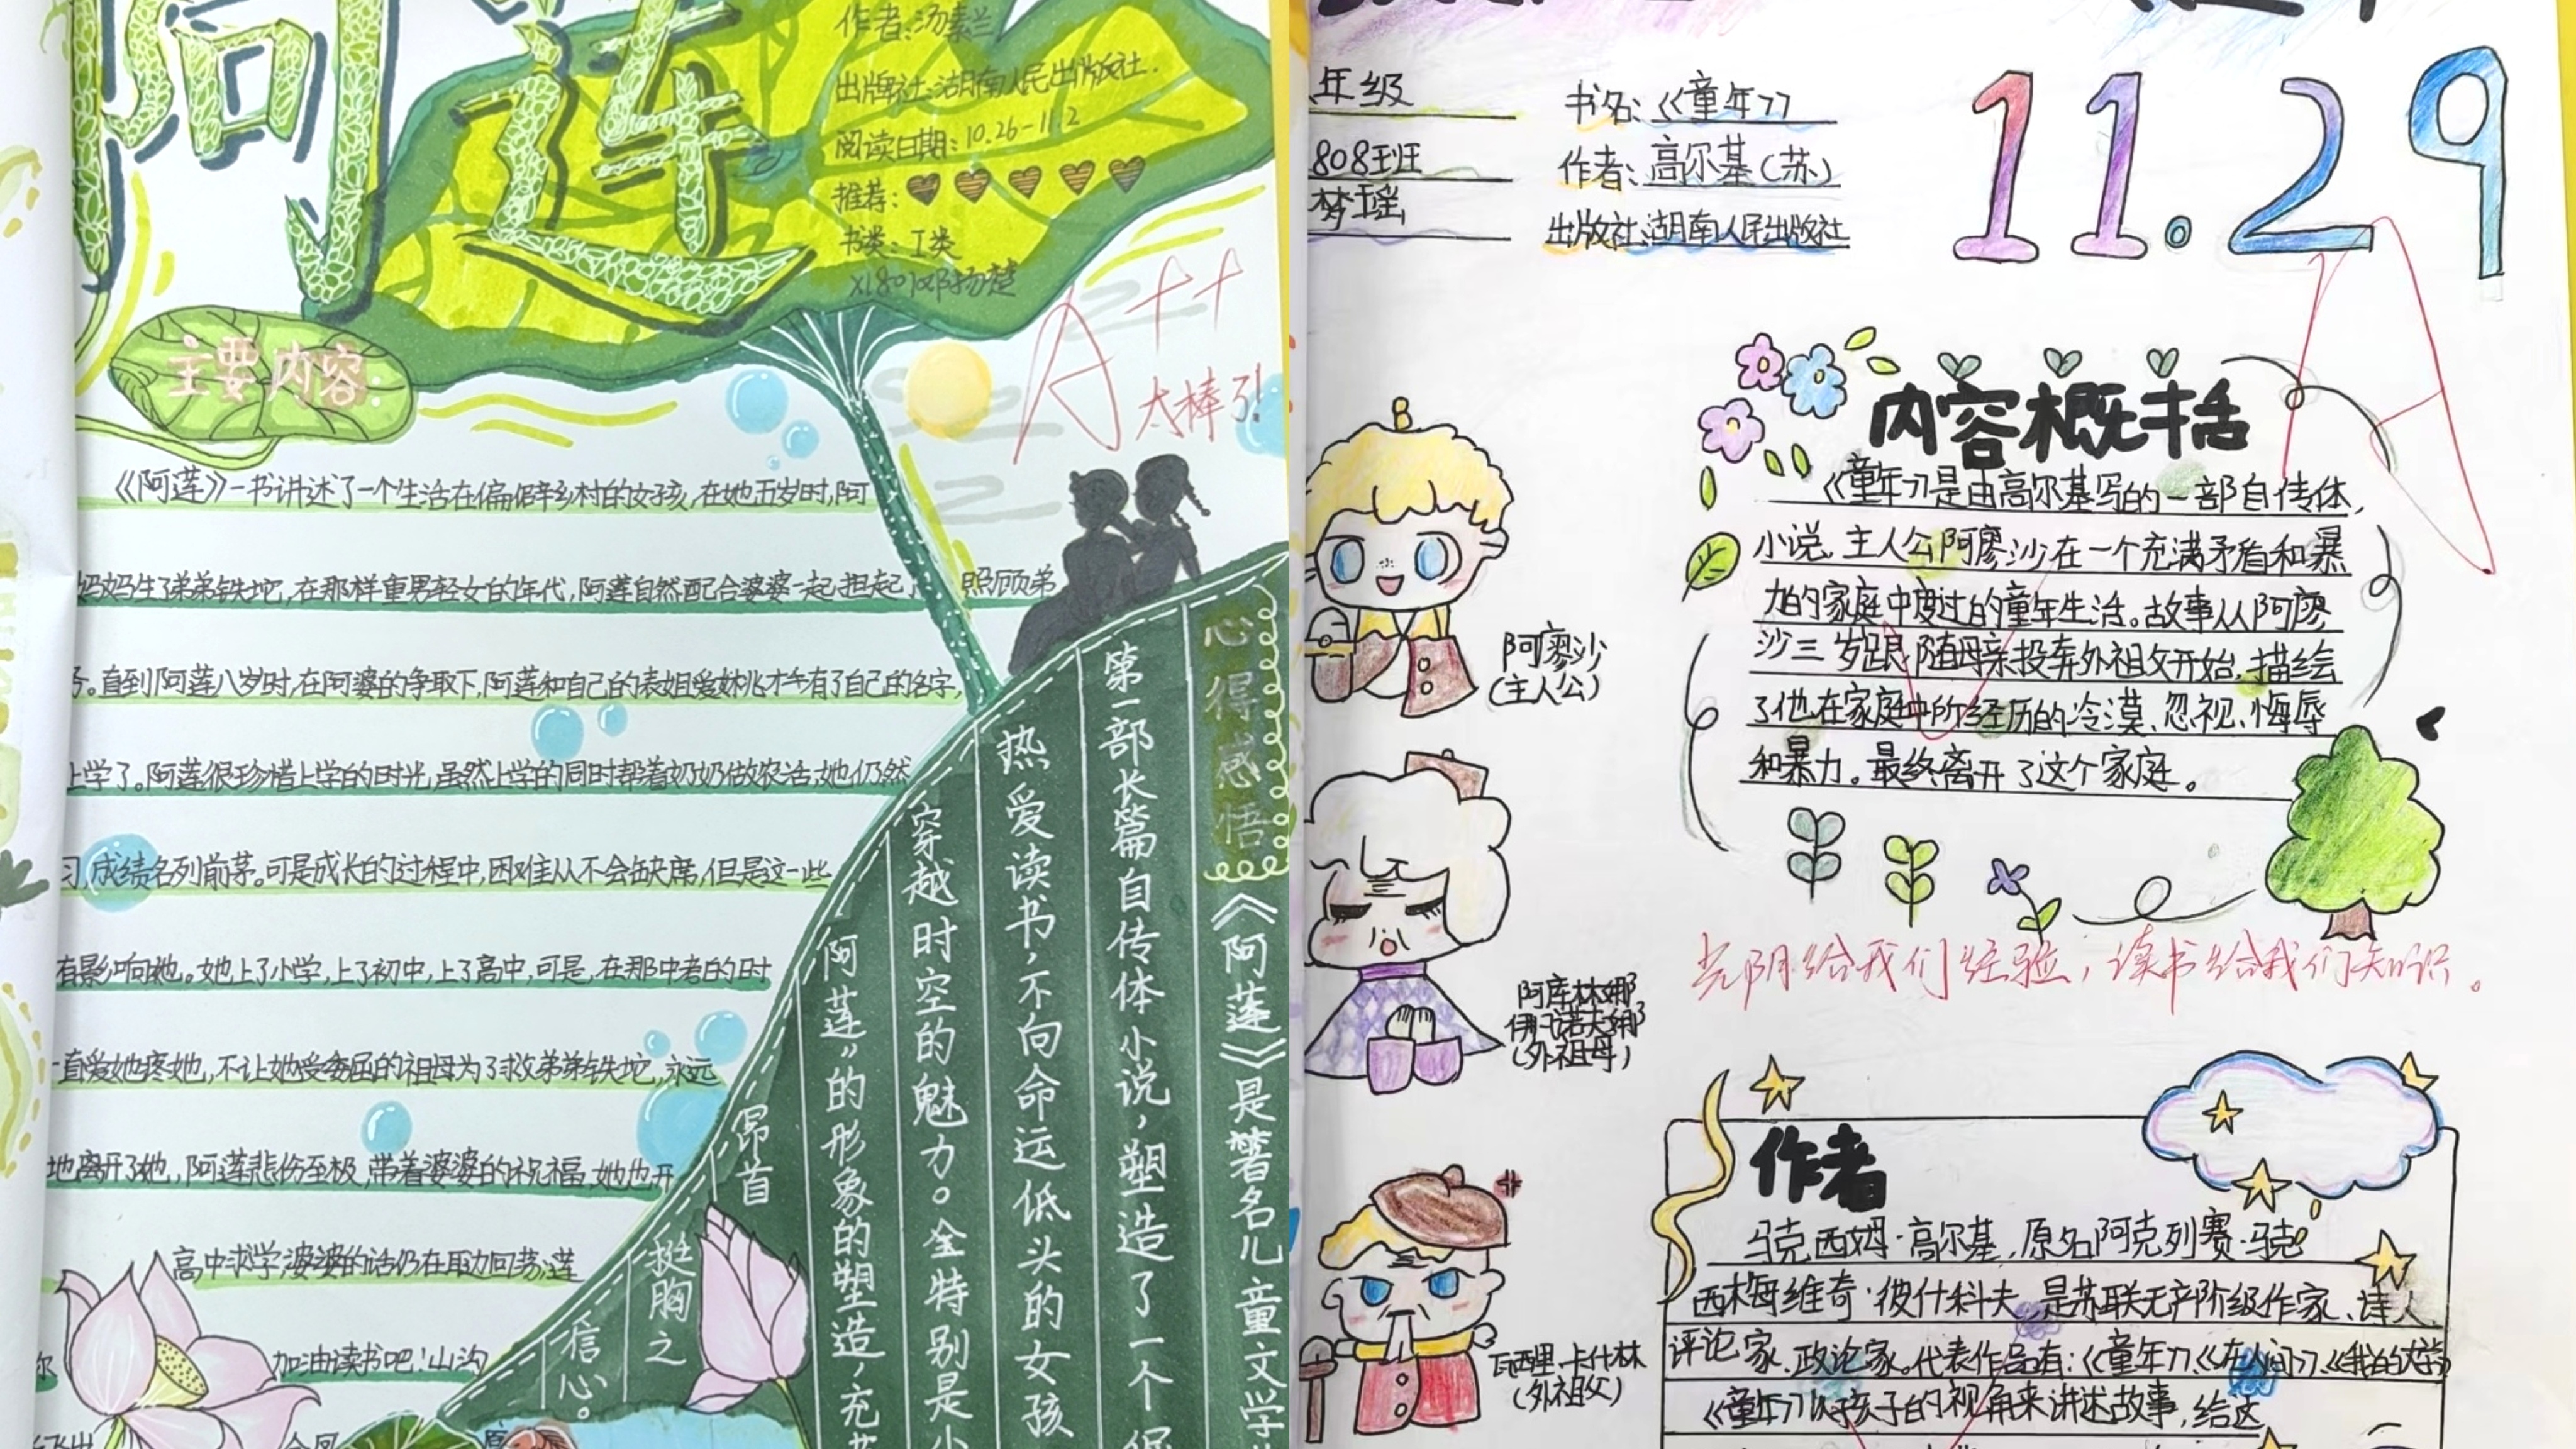 阿莲
作者:汤素兰
出版社:湖南人民出版社.
阅读日期:10.26-11.2
推荐:
书类:I类
主要内容:
A++
太棒了!
《阿莲》一书讲述了一个生活在偏僻乡村的女孩,在她五岁时,阿
妈妈生了弟弟铁坨,在那样重男轻女的年代,阿莲自然配合婆婆一起担起 照顾弟
。直到阿莲八岁时,在阿婆的争取下,阿莲和自己的表姐爱姚才有了自己的名字,
上学了。阿莲很珍惜上学的时光,虽然上学的同时帮着奶奶做农活,她仍然
习,成绩名列前茅。可是成长的过程中,困难从不会缺席,但是这一些
有影响她。她上了小学,上了初中,上了高中,可是,在那中考的时
一直爱她疼她,不让她受委屈的祖母为了救弟弟铁坨,永远
地离开了她,阿莲悲伤至极,带着婆婆的祝福,她也开
高中求学,婆婆的话仍在耳边回荡:莲
加油读书吧!山沟
心得感悟
《阿莲》是著名儿童文学
第一部长篇自传体小说,塑造了一个
热爱读书,不向命运低头的女孩
穿越时空的魅力。全特别是
阿莲”的形象的塑造,充
昂首
挺胸之
信心。
年级
808班
梦瑶
书名:《童年》
作者:高尔基(苏)
出版社:湖南人民出版社
11.29
A
内容概括
《童年》是由高尔基写的一部自传体,
小说,主人公阿廖沙在一个充满矛盾和暴
力的家庭中度过的童年生活。故事从阿廖
沙三岁跟随母亲投奔外祖父开始,描绘
了他在家庭中所经历的冷漠、忽视、侮辱
和暴力。最终离开了这个家庭。
阿廖沙
(主人公)
阿库林娜
伊凡诺夫娜
(外祖母)
瓦西里.卡什林
(外祖父)
光阴给我们经验,读书给我们知识。
作者
马克西姆·高尔基,原名阿克列赛·马克
西姆维奇·彼什科夫,是苏联无产阶级作家、诗人
评论家、政论家。代表作品有:《童年》、《在人间》、《我的大学》
《童年》以孩子的视角来讲述故事,给这